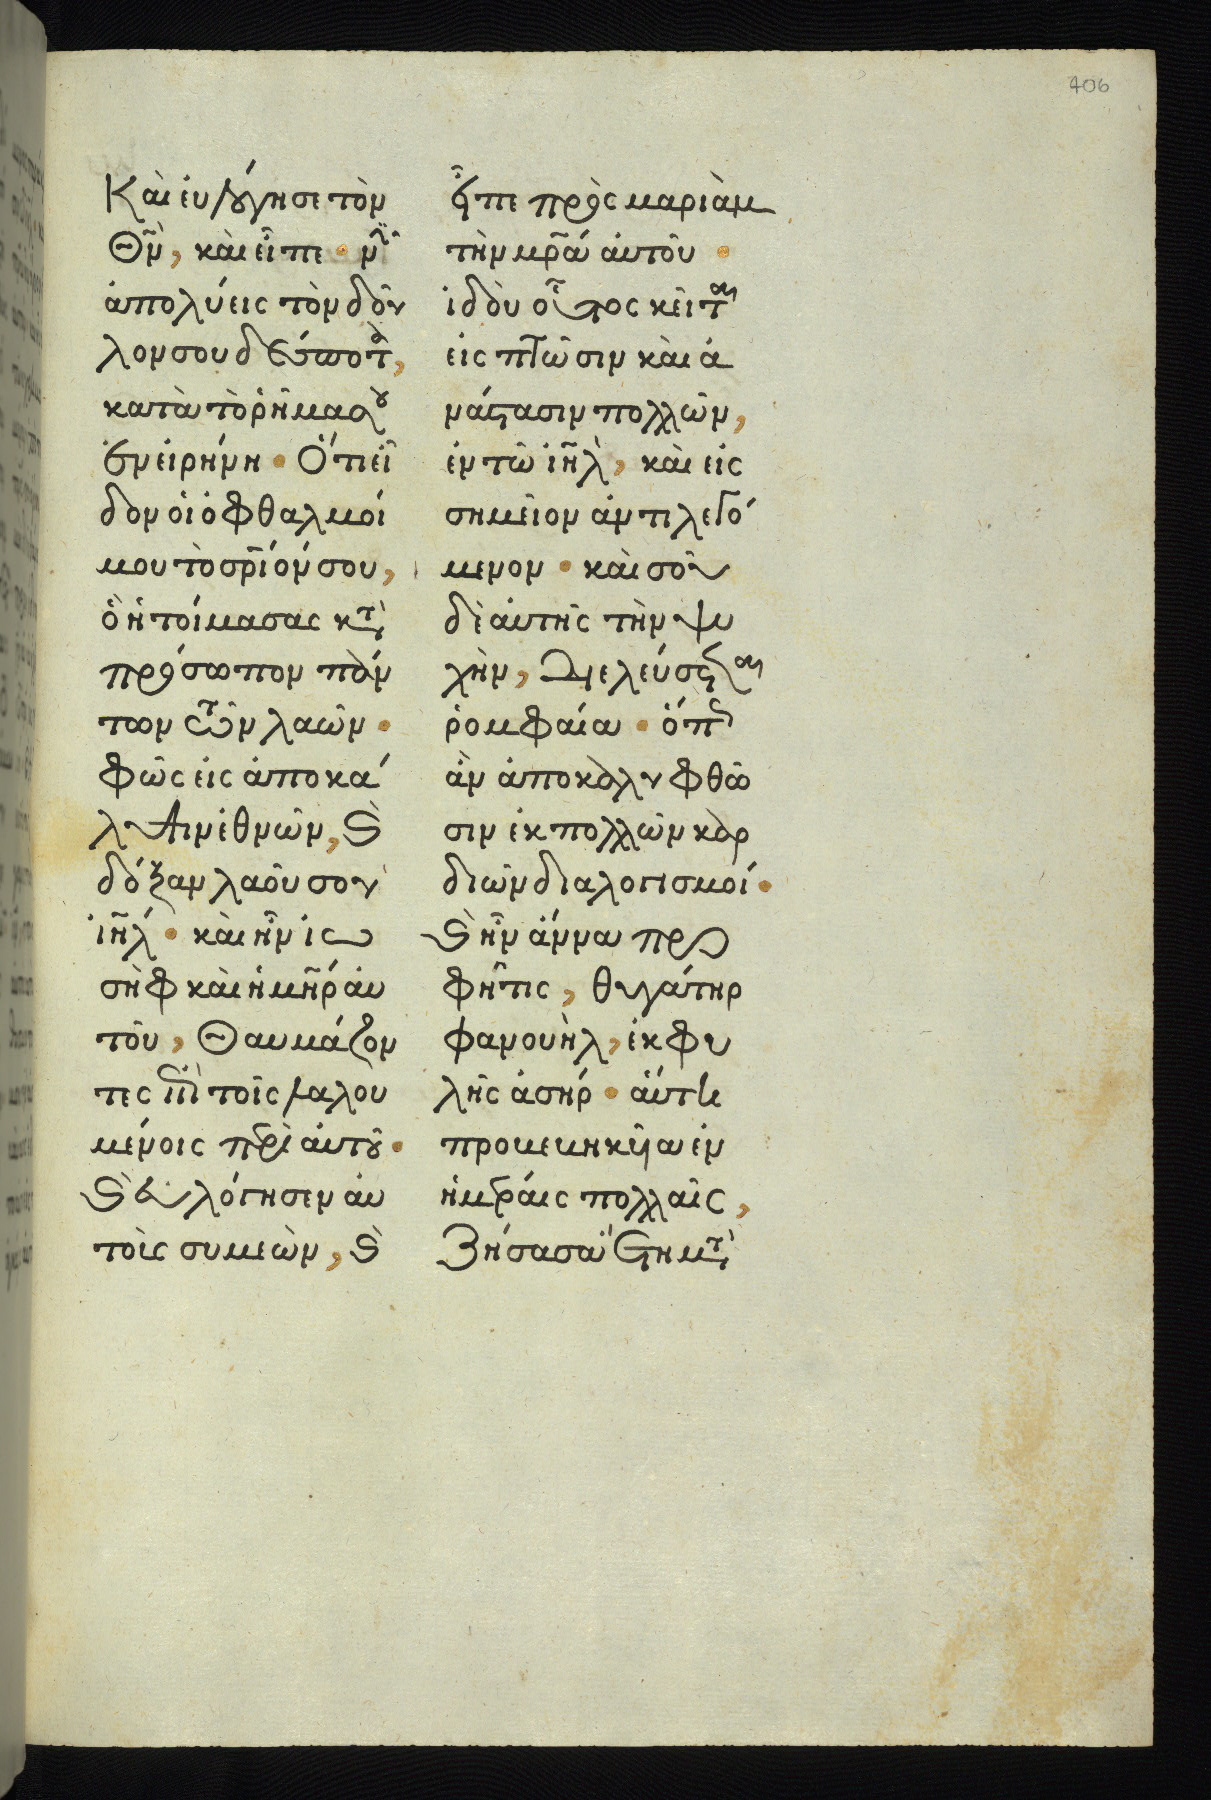 406
Καὶ ἐυλόγησε τὸν
Θν̃, καὶ εἶπε · νῦν
ἀπολύεις τὸν δοῦ
λον σου δέσποτα,
κατὰ τὸ ῥῆμα σου
ἐν εἰρήνη · Ὅτι εἶ
δον οἱ ὀφθαλμοί
μου τὸ σρ̃ιόν σου,
ὃ ἡτοίμασας κτ̀
πρόσωπον πάν
των τῶν λαῶν ·
φῶς εἰς ἀποκά
λυψιν ἐθνῶν, ϛ̀
δόξαν λαοῦ σου
ἰη̃λ · καὶ ἦν ἰω
σὴφ καὶ ἡ μη̃ρ ἀυ
τοῦ, Θαυμάζον
τες ἐπὶ τοῖς λαλου
μένοις περὶ ἀυτοῦ ·
ϛ̀ ἐυλόγησεν ἀυ
τοὺς συμεὼν, ϛ̀
εἶπε πρὸς μαριὰμ
τὴν μρ̃α ἀυτοῦ ·
ἰδοὺ οὗτος κεῖται
εἰς πτῶσιν καὶ ἀ
νάστασιν πολλῶν,
ἐν τῶ ἰη̃λ, καὶ εἰς
σημεῖον ἀντιλεγό
μενον · καὶ σοῦ
δὲ ἀυτῆς τὴν ψυ
χὴν, διελεύσεται
ῥομφαία · ὅπως
ἂν ἀποκαλυφθῶ
σιν ἐκ πολλῶν καρ
διῶν διαλογισμοί ·
ϛ̀ ἦν ἄννα προ
φῆτις, θυγάτηρ
φανουὴλ, ἐκ φυ
λῆς ἀσήρ · ἅυτη
προβεβηκῦα ἐν
ἡμέραις πολλαῖς,
Ζήσασα ἔτη μετὰ